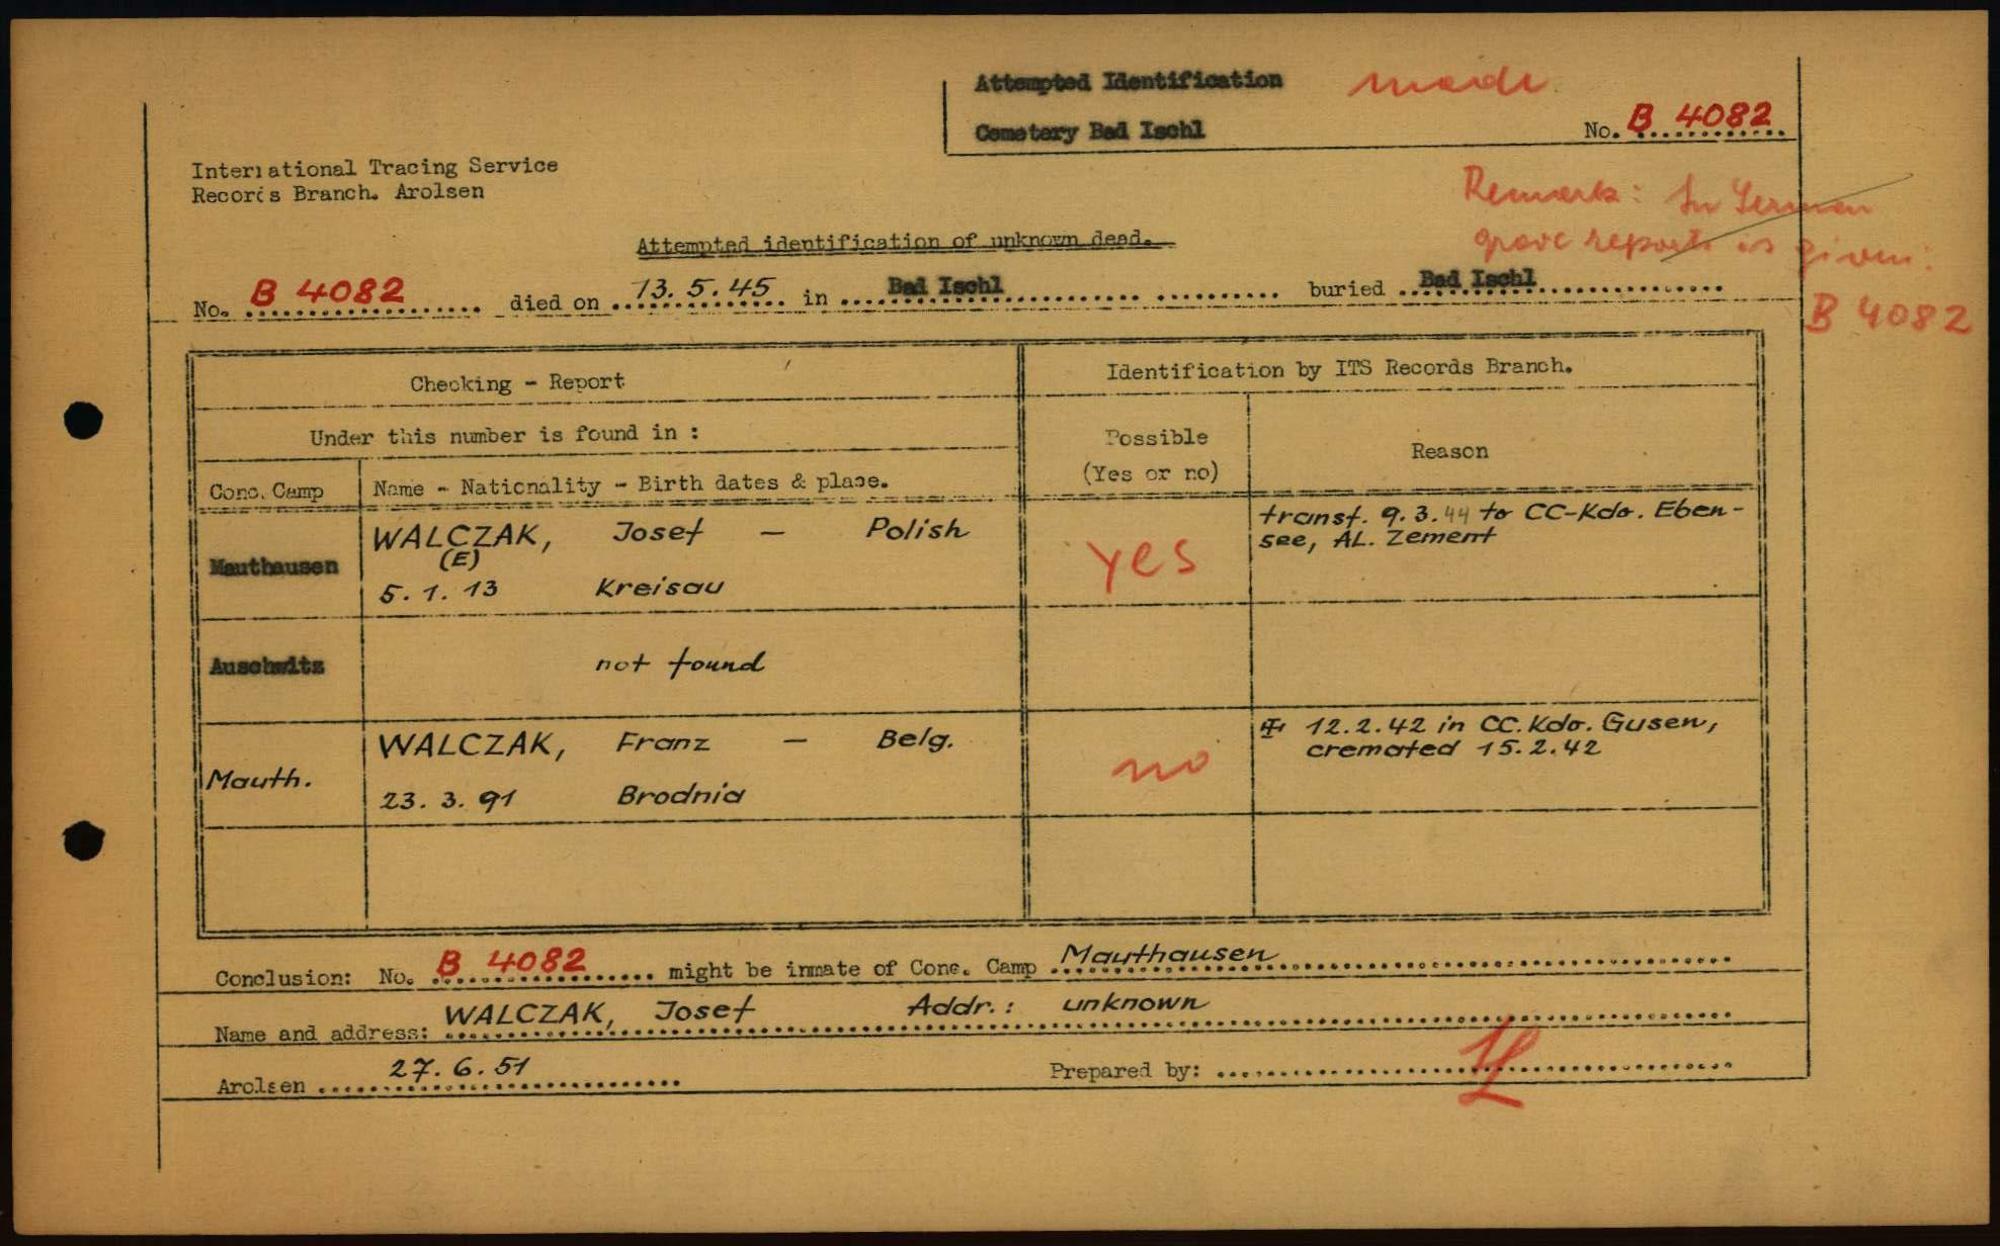 Attempted Identification made
Cemetery Bad Ischl No. B 4082
International Tracing Service
Records Branch. Arolsen
Remark: In German
grave reports is given:
B 4082
Attempted identification of unknown dead.
No. B 4082 died on 13.5.45 in Bad Ischl buried Bad Ischl
Checking - Report Identification by ITS Records Branch.
Under this number is found in : Possible (Yes or no) Reason
Conc. Camp Name - Nationality - Birth dates & place.
Mauthausen WALCZAK, Josef — Polish yes transf. 9.3.44 to CC-Kdo. Eben-
(E) see, AL. Zement
5.1.13 Kreisau
Auschwitz not found
Mauth. WALCZAK, Franz — Belg. no 12.2.42 in CC.Kdo. Gusen,
cremated 15.2.42
23.3.91 Brodnia
Conclusion: No. B 4082 might be inmate of Conc. Camp Mauthausen
Name and address: WALCZAK, Josef Addr.: unknown
Arolsen 27.6.51 Prepared by: